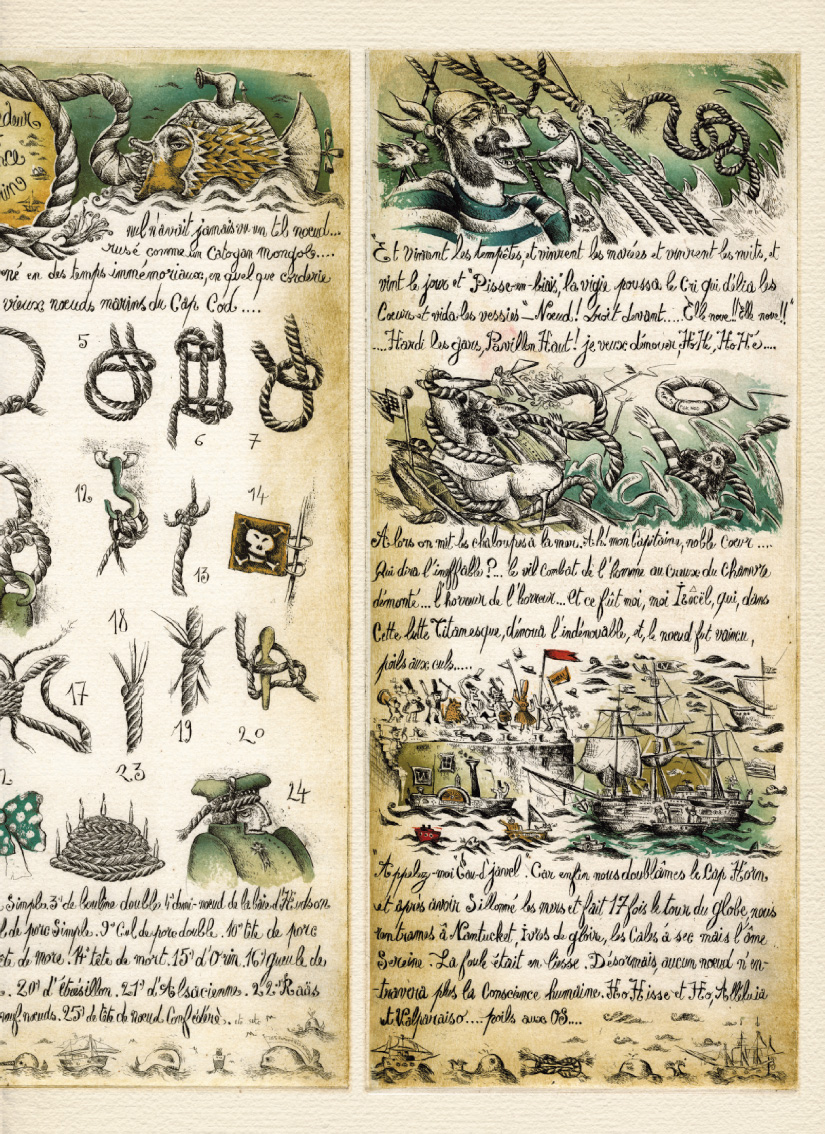 nul n'avait jamais vu un tel nœud...
rusé comme un Catogan Mongole....
né en des temps immémoriaux, en quel que corderie
vieux nœuds marins du Cap Cod ....
5
6
7
12
13
14
17
18
19
20
23
24
Simple. 3° de bouline double 4° demi-nœud de la baie d'Hudson
de porc Simple. 9° Col de porc double. 10° tête de porc
de more. 14° tête de mort. 15° d'Orin. 16° gueule de
20° d'étrésillon. 21° d'Alsacienne. 22° Raas
neuf nœuds. 25° de tête de nœud Confédéré..
Et vinrent les tempêtes, et vinrent les marées et vinrent les nuits, et
vint le jour et "Pisse-en-biais", la vigie poussa le Cri qui délia les
Cœurs et vida les vessies — Nœud! Droit devant.... Elle nove!! Elle nove!!"
....Hardi les gars, Pavillon Haut! je veux dénouer, Ho Hé, Ho Hé....
Alors on mit les chaloupes à la mer. Ah! mon Capitaine, noble cœur ....
Qui dira l'ineffable?... le vil combat de l'homme au creux du chanvre
démonté... l'horreur de l'horreur... Et ce fût moi, moi qui, dans
Cette lutte Titanesque, dénoua l'indénouable, et, le nœud fut vaincu,
poils aux culs.....
"Appelez-moi "Eau-d'javel". Car enfin nous doublâmes le Cap Horn
et après avoir Sillonné les mers et fait 17 fois le tour du globe nous
rentrames à Nantucket, ivres de gloire, les Cales à sec mais l'âme
Sereine. La foule était en liesse. Désormais, aucun nœud n'en-
-travera plus la Conscience humaine. Ho Hisse et Ho, Alleluia
et Valparaiso.... poils aux OS....